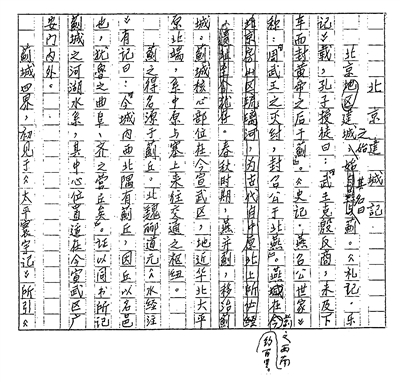 北京建城記
北京地区建城之始,其名曰蓟。《礼记·乐
记》载,孔子授徒曰:“武王克殷反商,未及下
车而封黄帝之后于蓟”。《史记·燕召公世家》
称:“周武王之灭纣,封召公于北燕”。燕城在今蓟之西南约百里。
琉璃河,为古代自中原北上所必经
春秋时期,燕并蓟,移治蓟
城。蓟城核心部位在今宣武区,地近华北大平
原北端,系中原与塞上来往交通之枢纽。
蓟之得名源于蓟丘。北魏郦道元《水经注
》有记曰:“今城内西北隅有蓟丘,因丘以名邑
也,犹鲁之曲阜,齐之营丘矣”。证以同书所记
蓟城之河湖水系,其中心位置宜在今宣武区广
安门内外。
蓟城四界,初见于《太平寰宇记》所引《